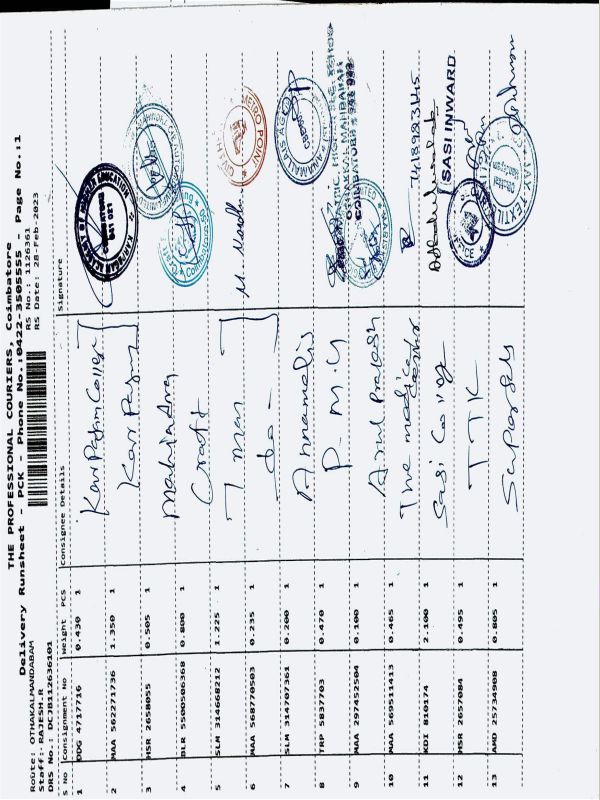 THE PROFESSIONAL COURIERS, Coimbatore
Delivery Runsheet - PCK - Phone No.:0422-3505555 - Page No.:1
Route: OTHAKALMANDABAM RS No.: 1126361
Staff: RAJESH.R RS Date: 28-Feb-2023
DRS No.: DCJB112636101
S No Consignment No Weight PCS Consignee Details Signature
1 DDG 4717716 0.430 1 Karpagam College
2 MAA 562271736 1.350 1 Karpagam
3 HSR 2658055 0.505 1 Mahindra
4 BLR 5500506368 0.800 1 Craft
5 SLM 314668212 1.225 1 7 man
6 MAA 568770503 0.235 1 -do-
7 SLM 314707361 0.200 1 Annamalai
8 TRP 5837703 0.470 1 P.M.G
9 MAA 297452504 0.100 1 Arul Prakash
10 MAA 569511413 0.465 1 The medical
11 KDI 810174 2.100 1 Sasi College SASI INWARD
12 HSR 2657084 0.495 1 TTK
13 AMD 25734908 0.805 1